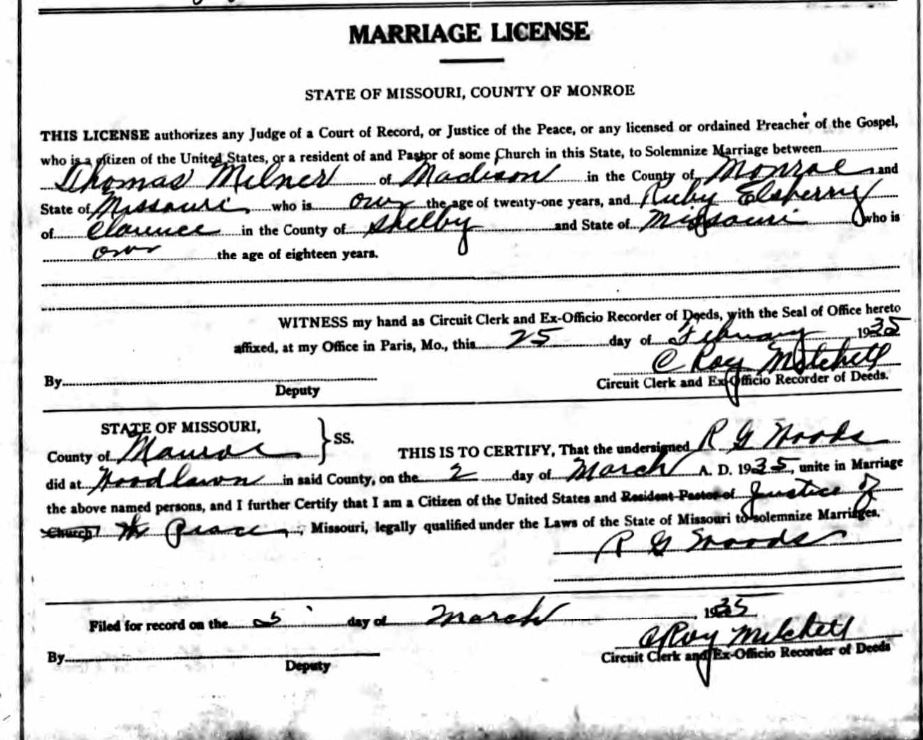 MARRIAGE LICENSE
STATE OF MISSOURI, COUNTY OF MONROE
THIS LICENSE authorizes any Judge of a Court of Record, or Justice of the Peace, or any licensed or ordained Preacher of the Gospel,
who is a citizen of the United States, or a resident of and Pastor of some Church in this State, to Solemnize Marriage between
Thomas Milner of Madison in the County of Monroe and
State of Missouri who is over the age of twenty-one years, and Ruby Elsberry
of Clarence in the County of Shelby and State of Missouri who is
over the age of eighteen years.
WITNESS my hand as Circuit Clerk and Ex-Officio Recorder of Deeds, with the Seal of Office hereto
affixed, at my Office in Paris, Mo., this 25 day of February 1935
C Roy Mitchell
By Deputy Circuit Clerk and Ex-Officio Recorder of Deeds.
STATE OF MISSOURI,
County of Monroe } SS. THIS IS TO CERTIFY, That the undersigned R G Woods
did at Woodlawn in said County, on the 2 day of March A. D. 1935, unite in Marriage
the above named persons, and I further Certify that I am a Citizen of the United States and Resident Pastor of Justice of
Church the Peace, Missouri, legally qualified under the Laws of the State of Missouri to solemnize Marriages.
R G Woods
Filed for record on the day of March 1935
C Roy Mitchell
By Deputy Circuit Clerk and Ex-Officio Recorder of Deeds